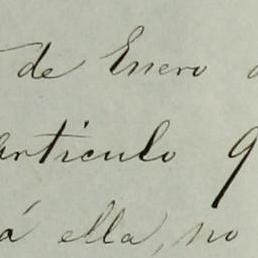 de Enero
articulo 9
á ella, no